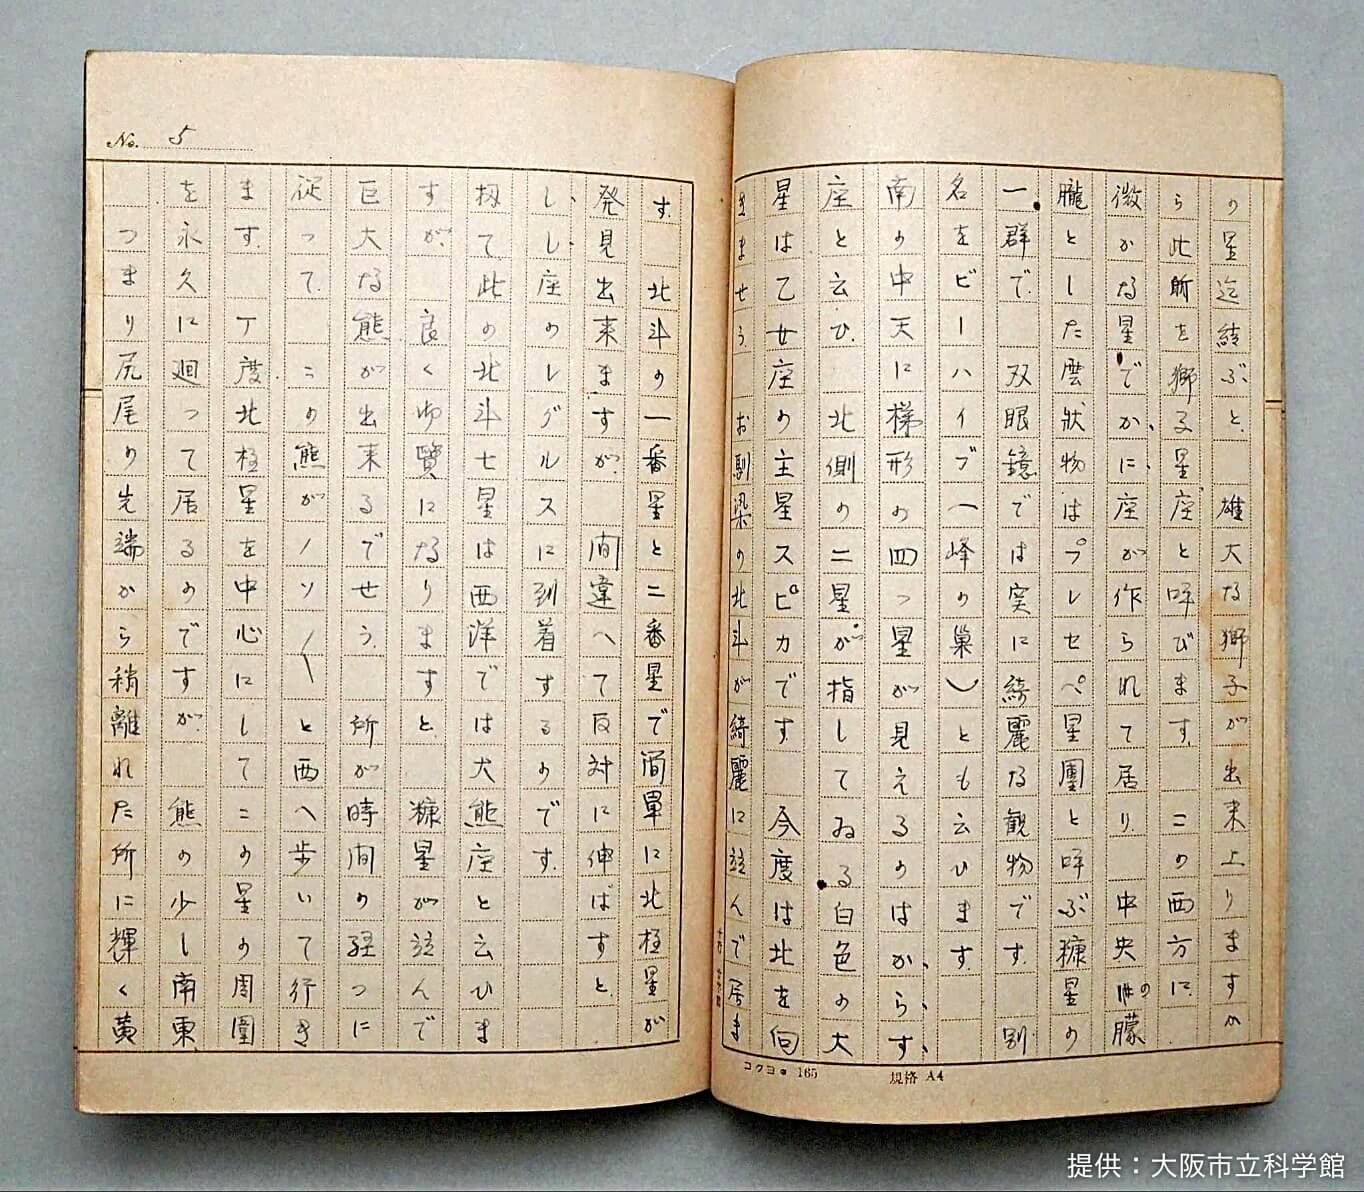 の星迄結ぶと、雄大な獅子が出来上りますか
ら此所を獅る星座と呼びます。この西方に、
微かな星でかに座が作られて居り、中央の朦
朧とした雲状物はプレセペ星團と呼ぶ糠星の
一群で、双眼鏡では実に綺麗な観物です。別
名をビーハイブ(峰の巣)とも云ひます。
南の中天に梯形の四つ星が見えるのはからす
座と云ひ、北側の二星が指してゐる白色の大
星は乙女座の主星スピカです 今度は北を向
きませう お馴染の北斗が綺麗に竝んで居ま
す。北斗の一番星と二番星で簡単に北極星が
発見出来ますが、間違へて反対に伸ばすと、
しし座のレグルスに到着するのです。
扨て、此の北斗七星は西洋では大熊座と云ひま
すが、良く御覽になりますと、糠星が竝んで
巨大な熊が出来るでせう。所が時間の経つに
従って、この熊がノソ〳〵と西へ歩いて行き
ます。丁度北極星を中心にしてこの星の周圍
を永久に廻って居るのですが、熊の少し南東
つまり尻尾の先端から稍離れた所に輝く黄
No. 5
コクヨ 165 規格 A4
提供:大阪市立科学館